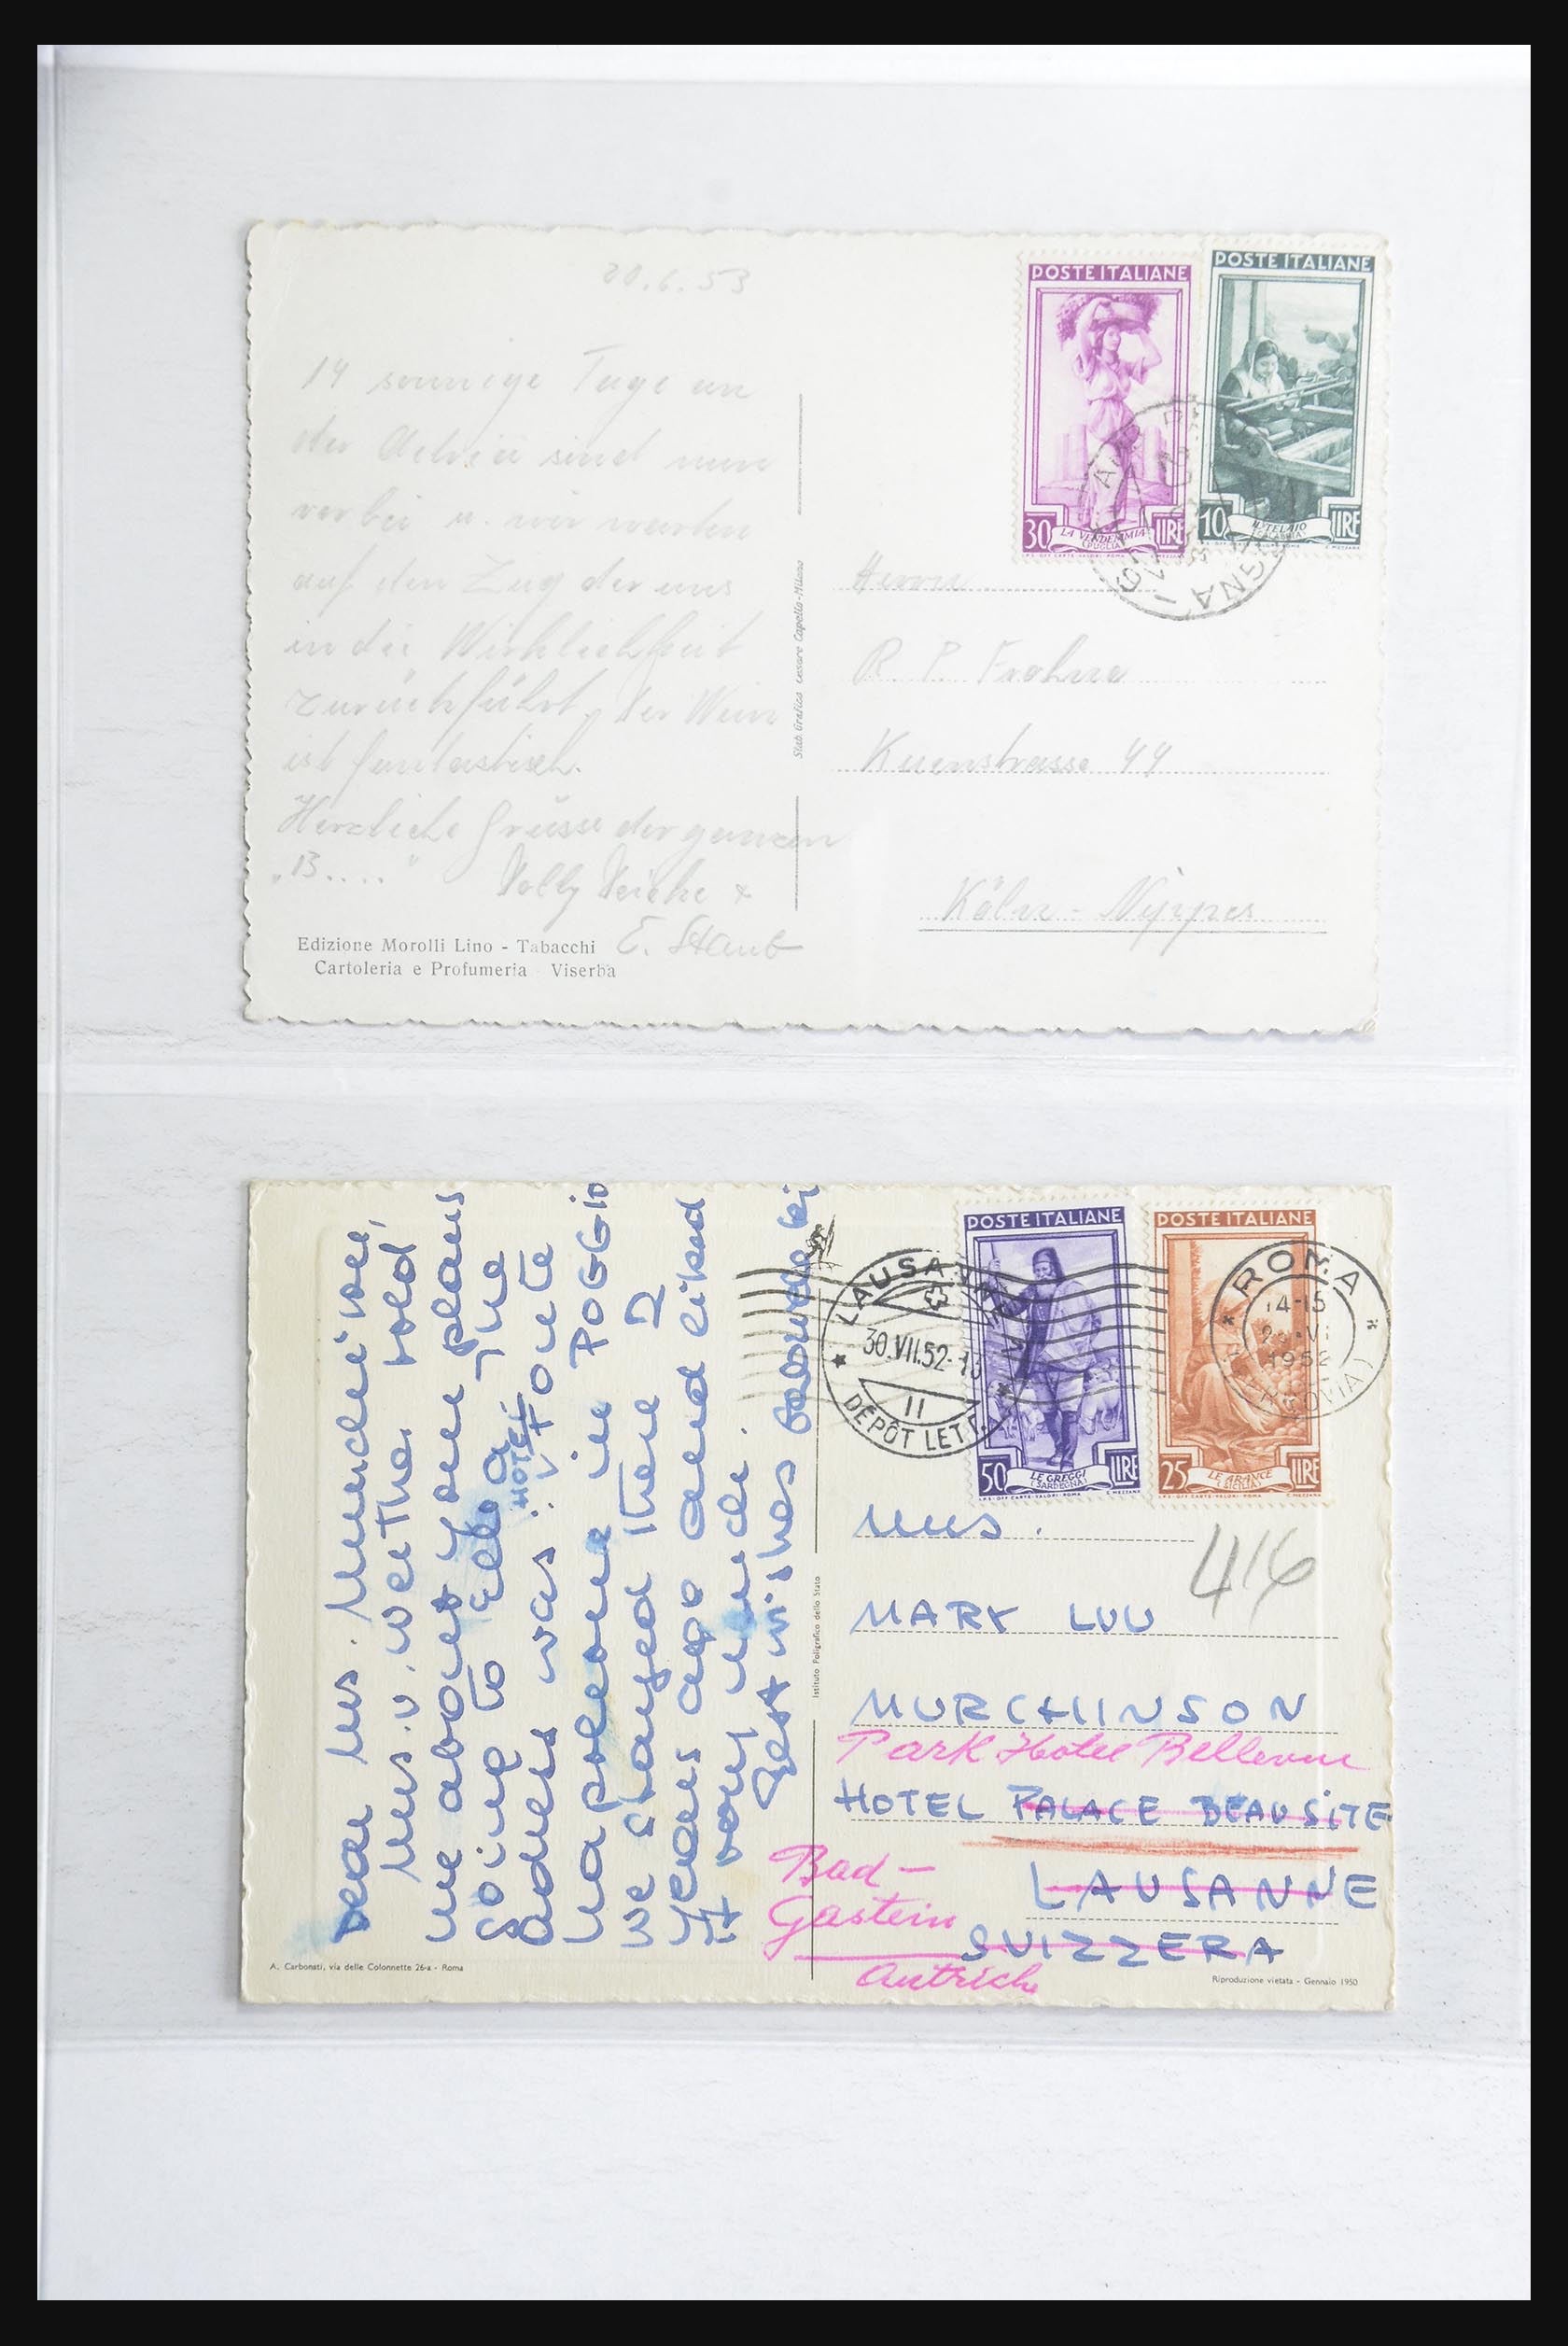 20.6.53
14 sonnige Tage an
der Adria sind nun
vorbei u. wir warten
auf den Zug der uns
in die Wirklichkeit
zurückführt, der Wein
ist fantastisch.
Herzliche Grüsse der ganzen
"B...."
E. Staub
Edizione Morolli Lino - Tabacchi
Cartoleria e Profumeria Viserba
Stab. Grafico Cesare Capello - Milano
POSTE ITALIANE
30 LA VENDEMMIA LIRE
(PUGLIA)
POSTE ITALIANE
10 IL TELAIO LIRE
(CALABRIA)
Herrn
R. P. Frohne
Kuenstrasse 44
Köln - Nippes
Dear Mrs. Murchinson,
Mrs. v. Wei the told
me about your plans
going to
HOTEL
address was:
in POGGIO
We stayed there 2
years ago and liked
it very much.
Best wishes
A. Carbonati, via delle Colonnette 26-a - Roma
Istituto Poligrafico dello Stato
LAUSANNE
30.VII.52-13
11
DÉPÔT LETT.
POSTE ITALIANE
50 LE GREGGI LIRE
(SARDEGNA)
POSTE ITALIANE
25 LE ARANCE LIRE
(SICILIA)
ROMA
14-15
1952
(FERROVIA)
Mrs.
416
MARK LUU
MURCHINSON
Park Hotel Bellevue
HOTEL PALACE BEAUSITE
LAUSANNE
Bad-
Gastein
SUIZZERA
Autriche
Riproduzione vietata - Gennaio 1950